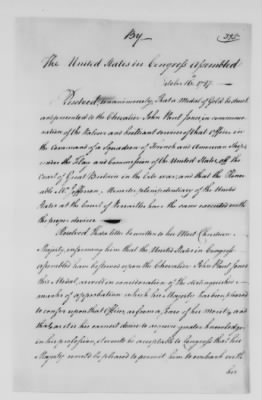 By
395
The United States in Congress Assembled
October 16. 1787.
Resolved, unanimously, That a Medal of Gold be struck
and presented to the Chevalier John Paul Jones, in commemo-
ration of the Valour and brilliant services of that Officer in
the Command of a Squadron of French and American Ships
under the Flag and Commission of the United States, off the
Coast of Great Britain in the late war; and that the Honor
able Mr. Jefferson, Minister plenipotentiary of the United
States at the Court of Versailles have the same executed with
the proper devices.
Resolved That a letter be written to his Most Christian
Majesty, informing him that the United States in Congress
assembled have bestowed upon the Chevalier John Paul Jones
this Medal, as well in consideration of the distinguished
marks of approbation which his Majesty has been pleased
to confer upon that Officer, as from a sense of his merit, and
that, as it is his earnest desire to acquire greater knowledge
in his profession, it would be acceptable to Congress that his
Majesty would be pleased to permit him to embark with
his